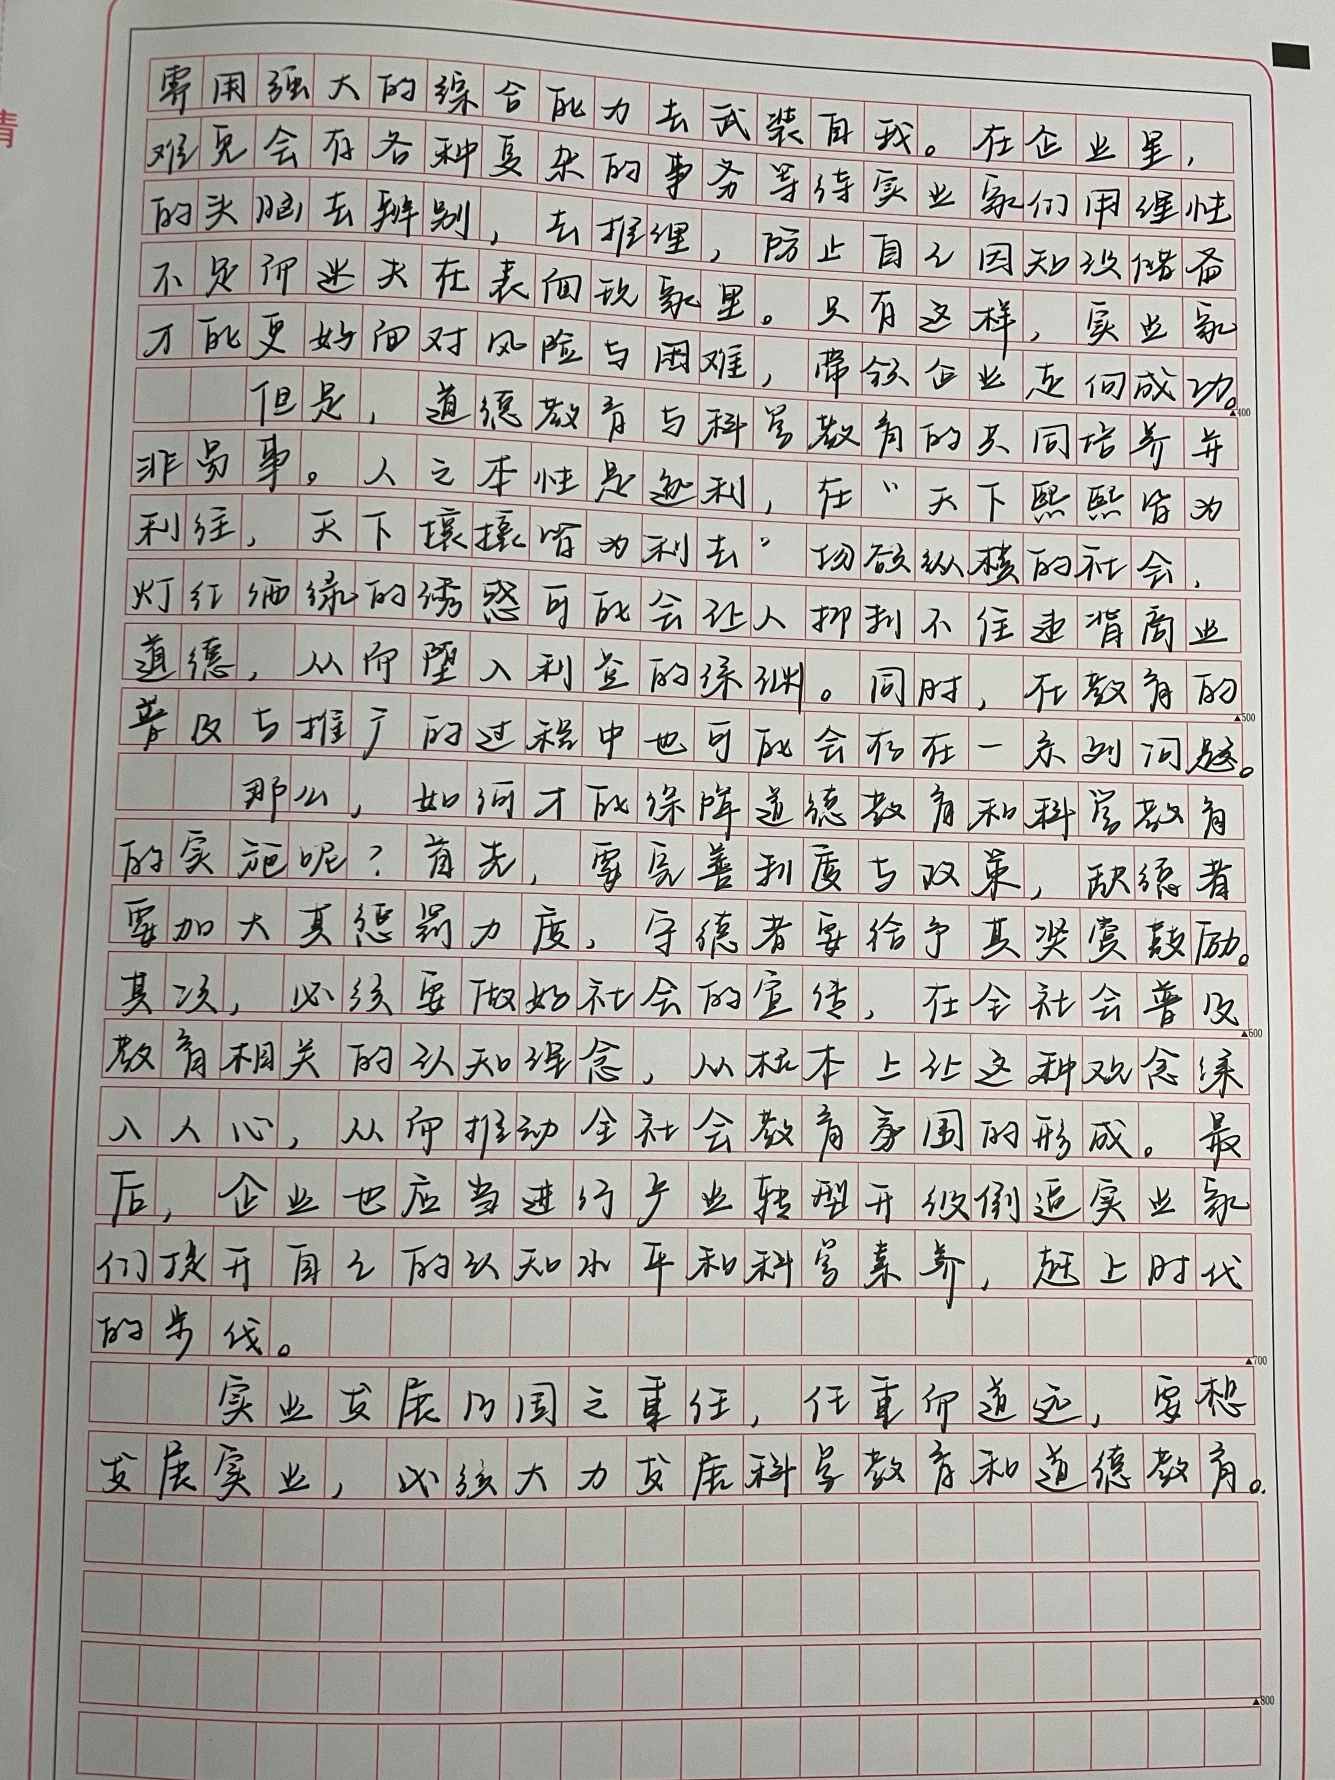 需用强大的综合能力去武装自我。在企业里，
难免会有各种复杂的事务等待实业家们用理性
的头脑去辨别，去推理，防止自己因知识储备
不足而迷失在表面现象里。只有这样，实业家
才能更好面对风险与困难，带领企业走向成功。
▲400
但是，道德教育与科学教育的共同培养并
非易事。人之本性是逐利，在“天下熙熙皆为
利往，天下壤壤皆为利去”物欲纵横的社会，
灯红酒绿的诱惑可能会让人抑制不住违背商业
道德，从而堕入利益的深渊。同时，在教育的
▲500
普及与推广的过程中也可能会存在一系列问题。
那么，如何才能保障道德教育和科学教育
的实施呢？首先，要完善制度与政策，缺德者
要加大其惩罚力度，守德者要给予其奖赏鼓励。
其次，必须要做好社会的宣传，在全社会普及
▲600
教育相关的认知理念，从根本上让这种观念深
入人心，从而推动全社会教育氛围的形成。最
后，企业也应当进行产业转型升级倒逼实业家
们提升自己的认知水平和科学素养，赶上时代
的步伐。
▲700
实业发展乃国之重任，任重而道远，要想
发展实业，必须大力发展科学教育和道德教育。
▲800